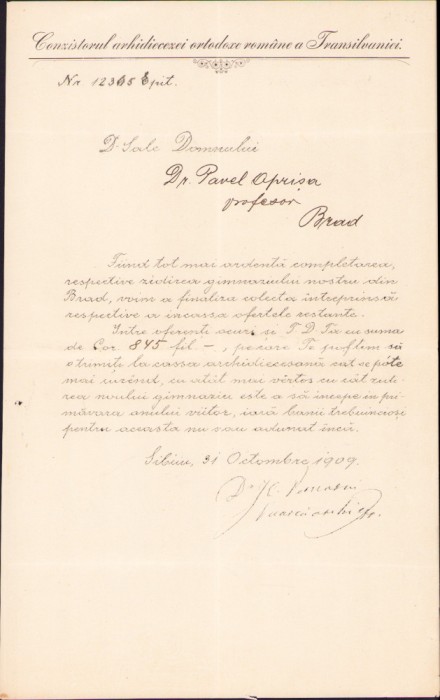 Conzistorul arhidiecezei ortodoxe române a Transilvaniei.
Nr. 12365 Epit.
D-Sale Domnului
Dr. Pavel Oprișa
profesor
Brad
Fiind tot mai ardentă completarea,
respective zidirea gimnasiului nostru din
Brad, voim a finaliza colecta întreprinsă
respective a incassa ofertele restante.
Între oferenți ocură și T. D. Ta cu suma
de Cor 845 fil –, pe care Te poftim să
o trimiți la cassa archidiecesană cât se pôte
mai curênd, cu atât mai vîrtos cu cât zidi-
rea noului gimnaziu este a să începe în pri-
măvara anului viitor, iară banii trebuincioși
pentru aceasta nu sau adunat încă.
Sibiiu, 31 Octomvre 1909.
Dr.